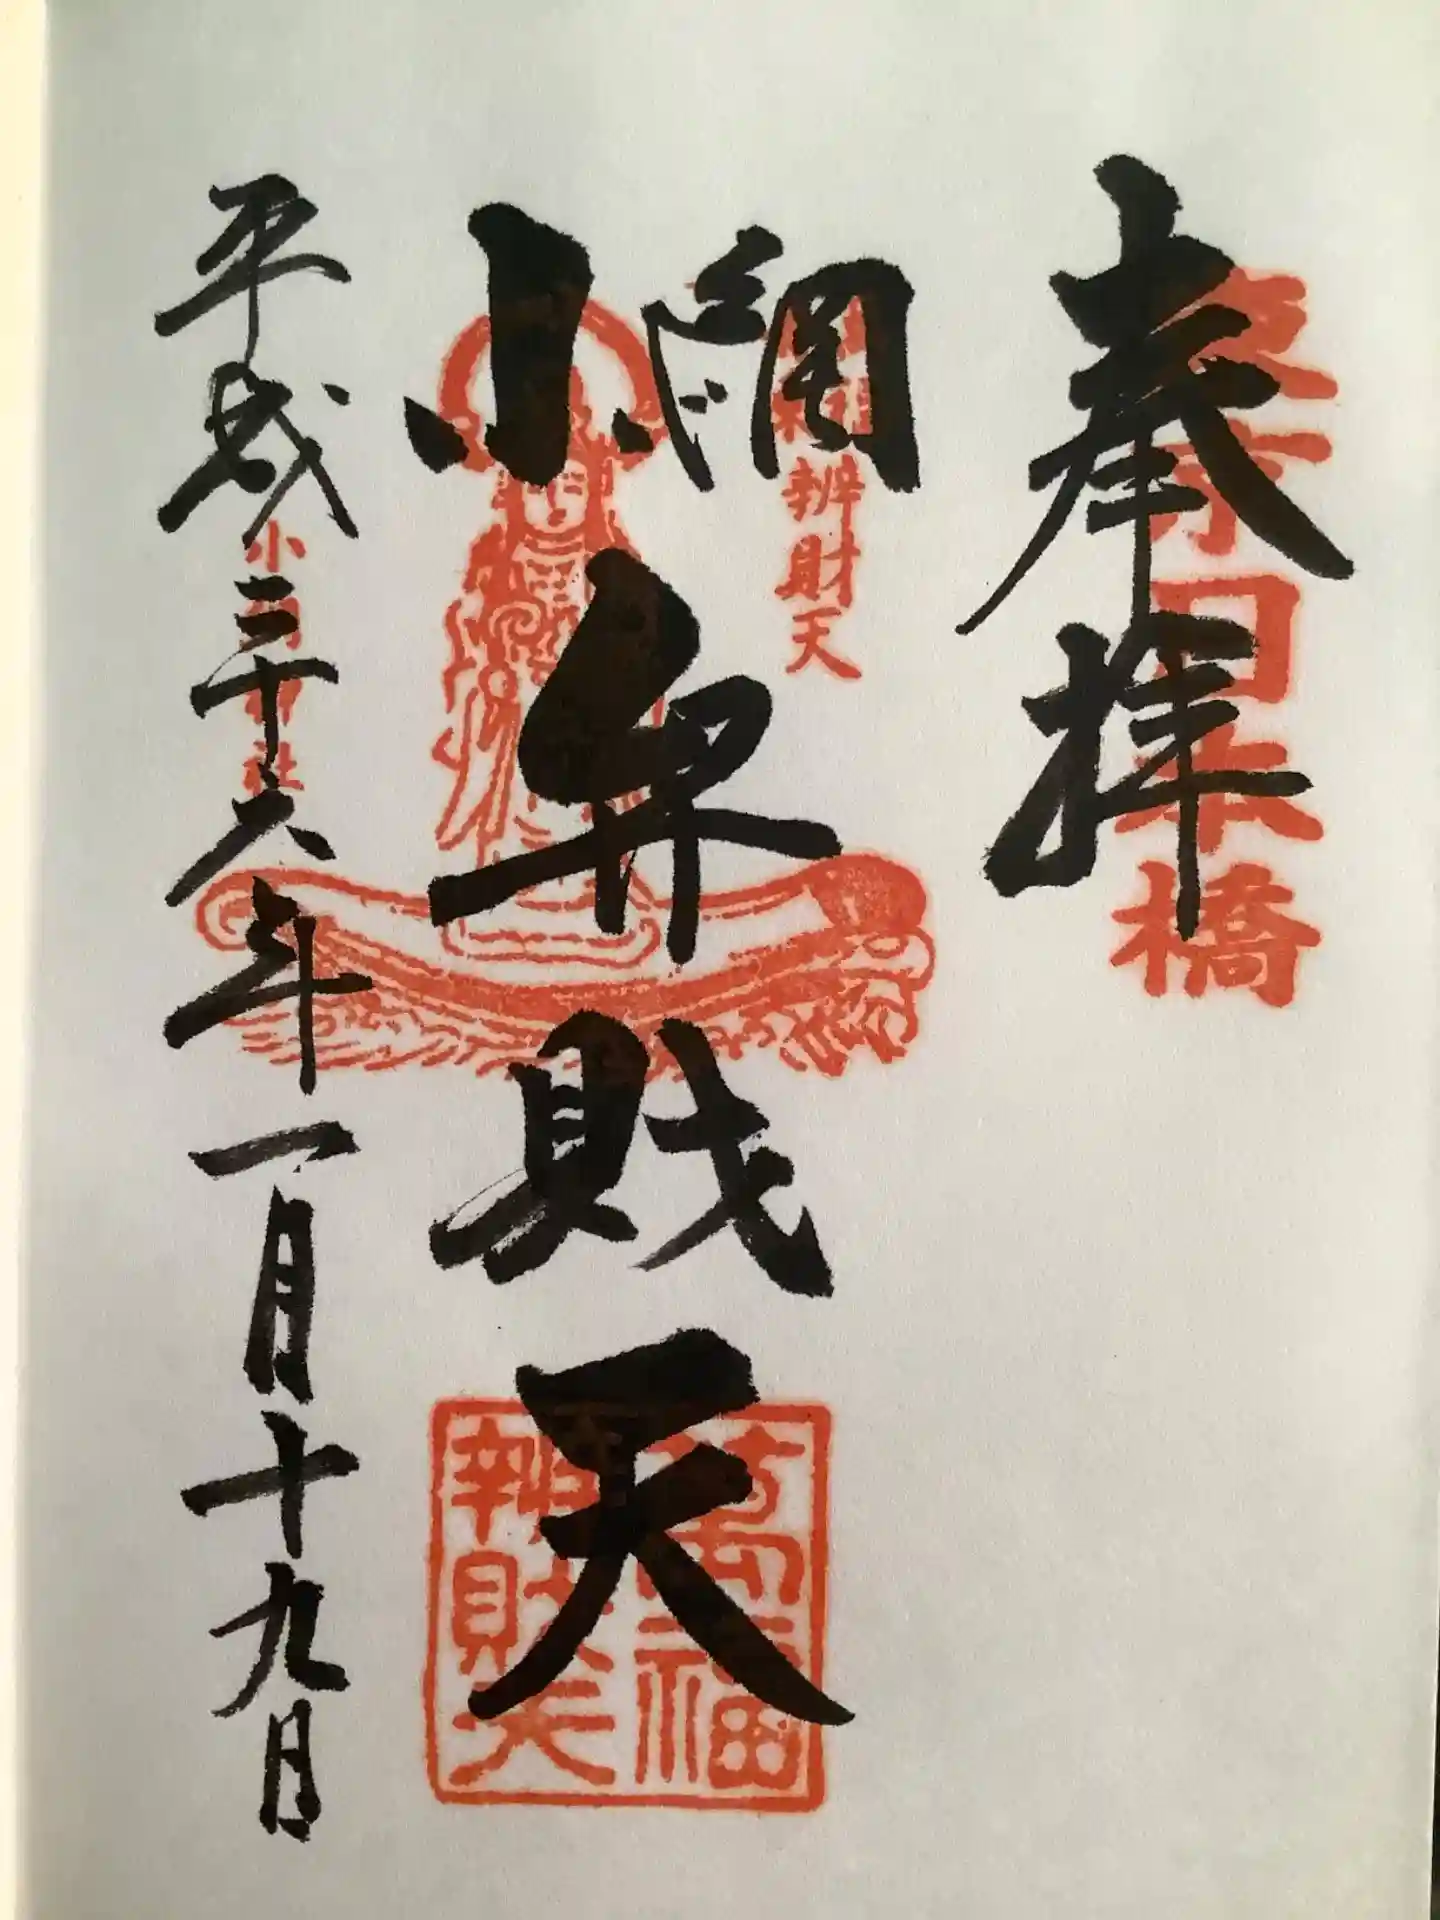 奉拝
東京日本橋
小網
辨財天
弁財天
萬福
辨財天
平成二十六年一月十九日
小網神社